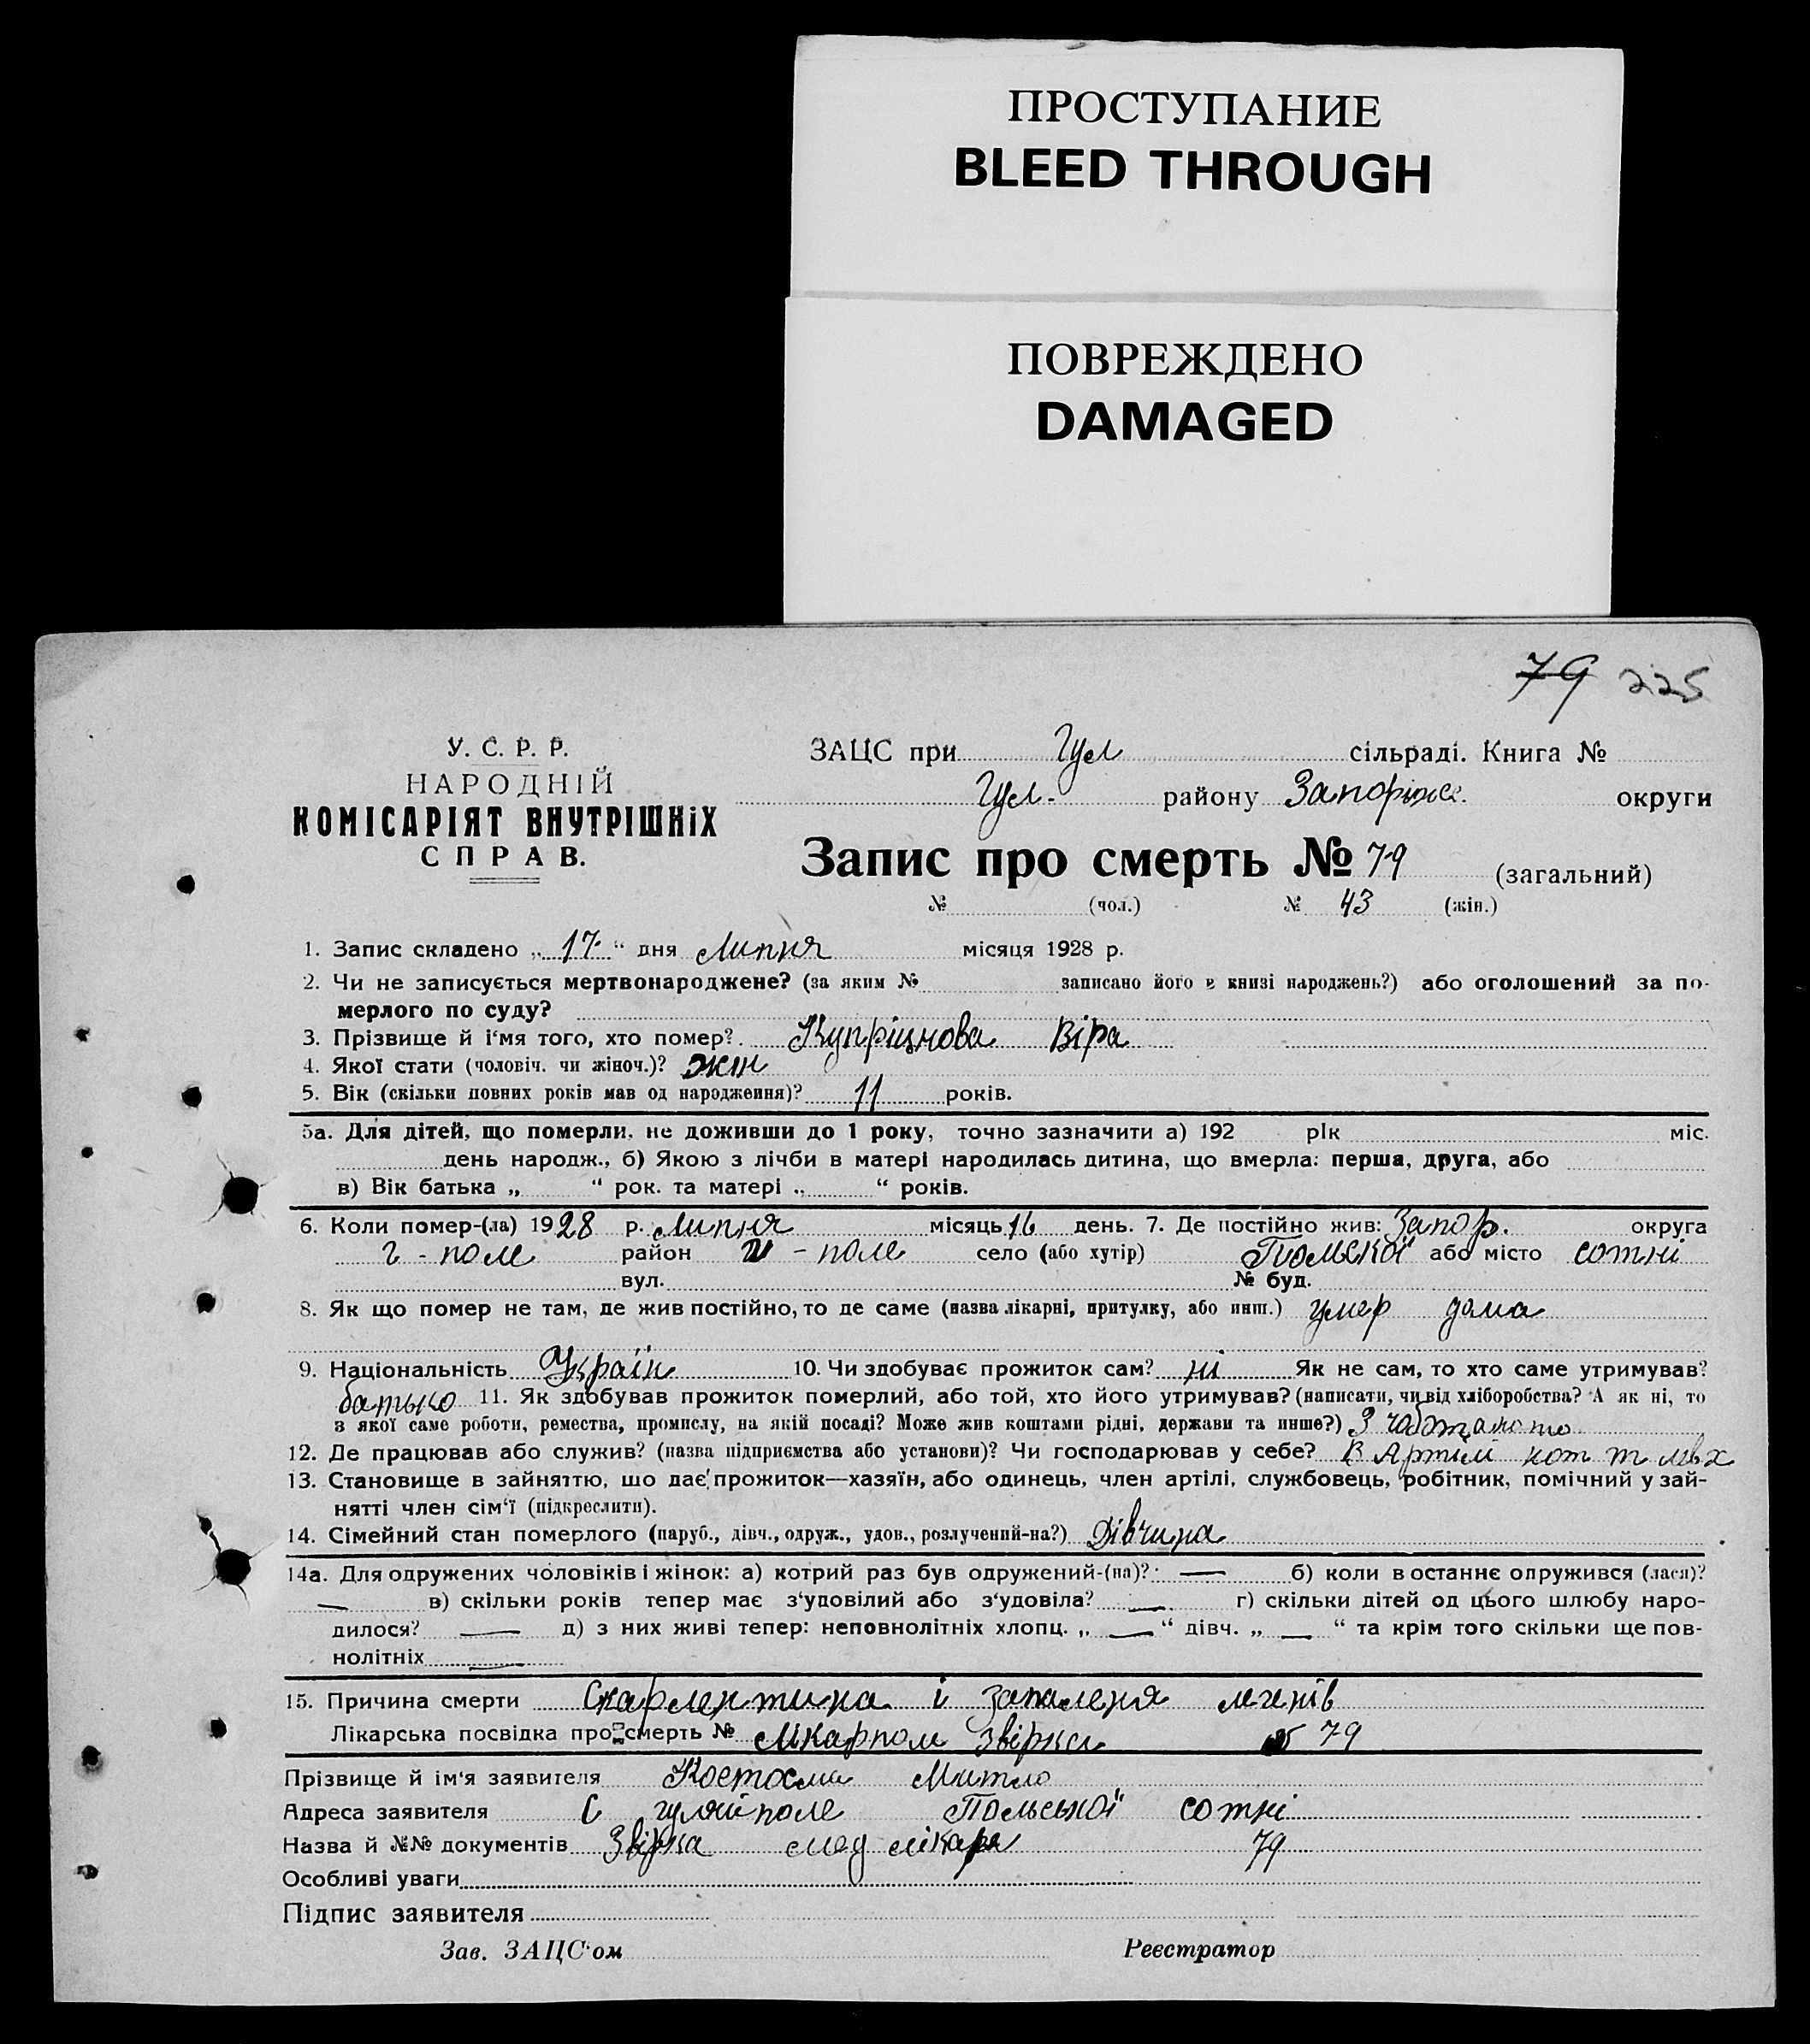 ПРОСТУПАНИЕ
BLEED THROUGH
ПОВРЕЖДЕНО
DAMAGED
79 225
У. С. Р. Р.
НАРОДНІЙ
КОМІСАРІЯТ ВНУТРІШНІХ
СПРАВ.
ЗАЦС при Гул сільраді. Книга №
Гул. району Запоріж. округи
Запис про смерть № 79 (загальний)
№ (чол.) № 43 (жін.)
1. Запис складено „ 17 “ дня Липня місяця 1928 р.
2. Чи не записується мертвонароджене? (за яким № записано його в книзі народжень?) або оголошений за по-
мерлого по суду?
3. Прізвище й і‘мя того, хто помер? Купріцнова Віра
4. Якої стати (чоловіч. чи жіноч.)? жін
5. Вік (скільки повних років мав од народження)? 11 років.
5а. Для дітей, що померли, не доживши до 1 року, точно зазначити а) 192 рік міс.
день народж., б) Якою з лічби в матері народилась дитина, що вмерла: перша, друга, або
в) Вік батька „ “ рок. та матері „ “ років.
6. Коли помер-(ла) 1928 р. Липня місяць 16 день. 7. Де постійно жив: Запор. округа
г - поле район г - поле село (або хутір) Польскої або місто сотні
вул. № буд.
8. Як що помер не там, де жив постійно, то де саме (назва лікарні, притулку, або инш.) умер дома
9. Національність Україн 10. Чи здобуває прожиток сам? ні Як не сам, то хто саме утримував?
батько 11. Як здобував прожиток померлий, або той, хто його утримував? (написати, чи від хліборобства? А як ні, то
з якої саме роботи, ремества, промислу, на якій посаді? Може жив коштами рідні, держави та инше?) З
12. Де працював або служив? (назва підприємства або установи)? Чи господарював у себе? В Артілі
13. Становище в зайняттю, що дає прожиток—хазяїн, або одинець, член артілі, службовець, робітник, помічний у зай-
нятті член сім‘ї (підкреслити).
14. Сімейний стан померлого (паруб., дівч., одруж., удов., розлучений-на?) Дівчина
14а. Для одружених чоловіків і жінок: а) котрий раз був одружений-(на)? — б) коли в останнє одружився (лася)?
— в) скільки років тепер має з‘удовілий або з‘удовіла? — г) скільки дітей од цього шлюбу наро-
дилося? — д) з них живі тепер: неповнолітніх хлопц. „ — “ дівч. „ — “ та крім того скільки ще пов-
нолітніх —
15. Причина смерти Скарлентина і запаленя легенів
Лікарська посвідка про смерть № Лікарпом звірка 79
Прізвище й ім‘я заявителя
Адреса заявителя С гуляй поле Польської сотні
Назва й №№ документів Звірка мед лікаря 79
Особливі уваги
Підпис заявителя
Зав. ЗАЦС‘ом Реєстратор